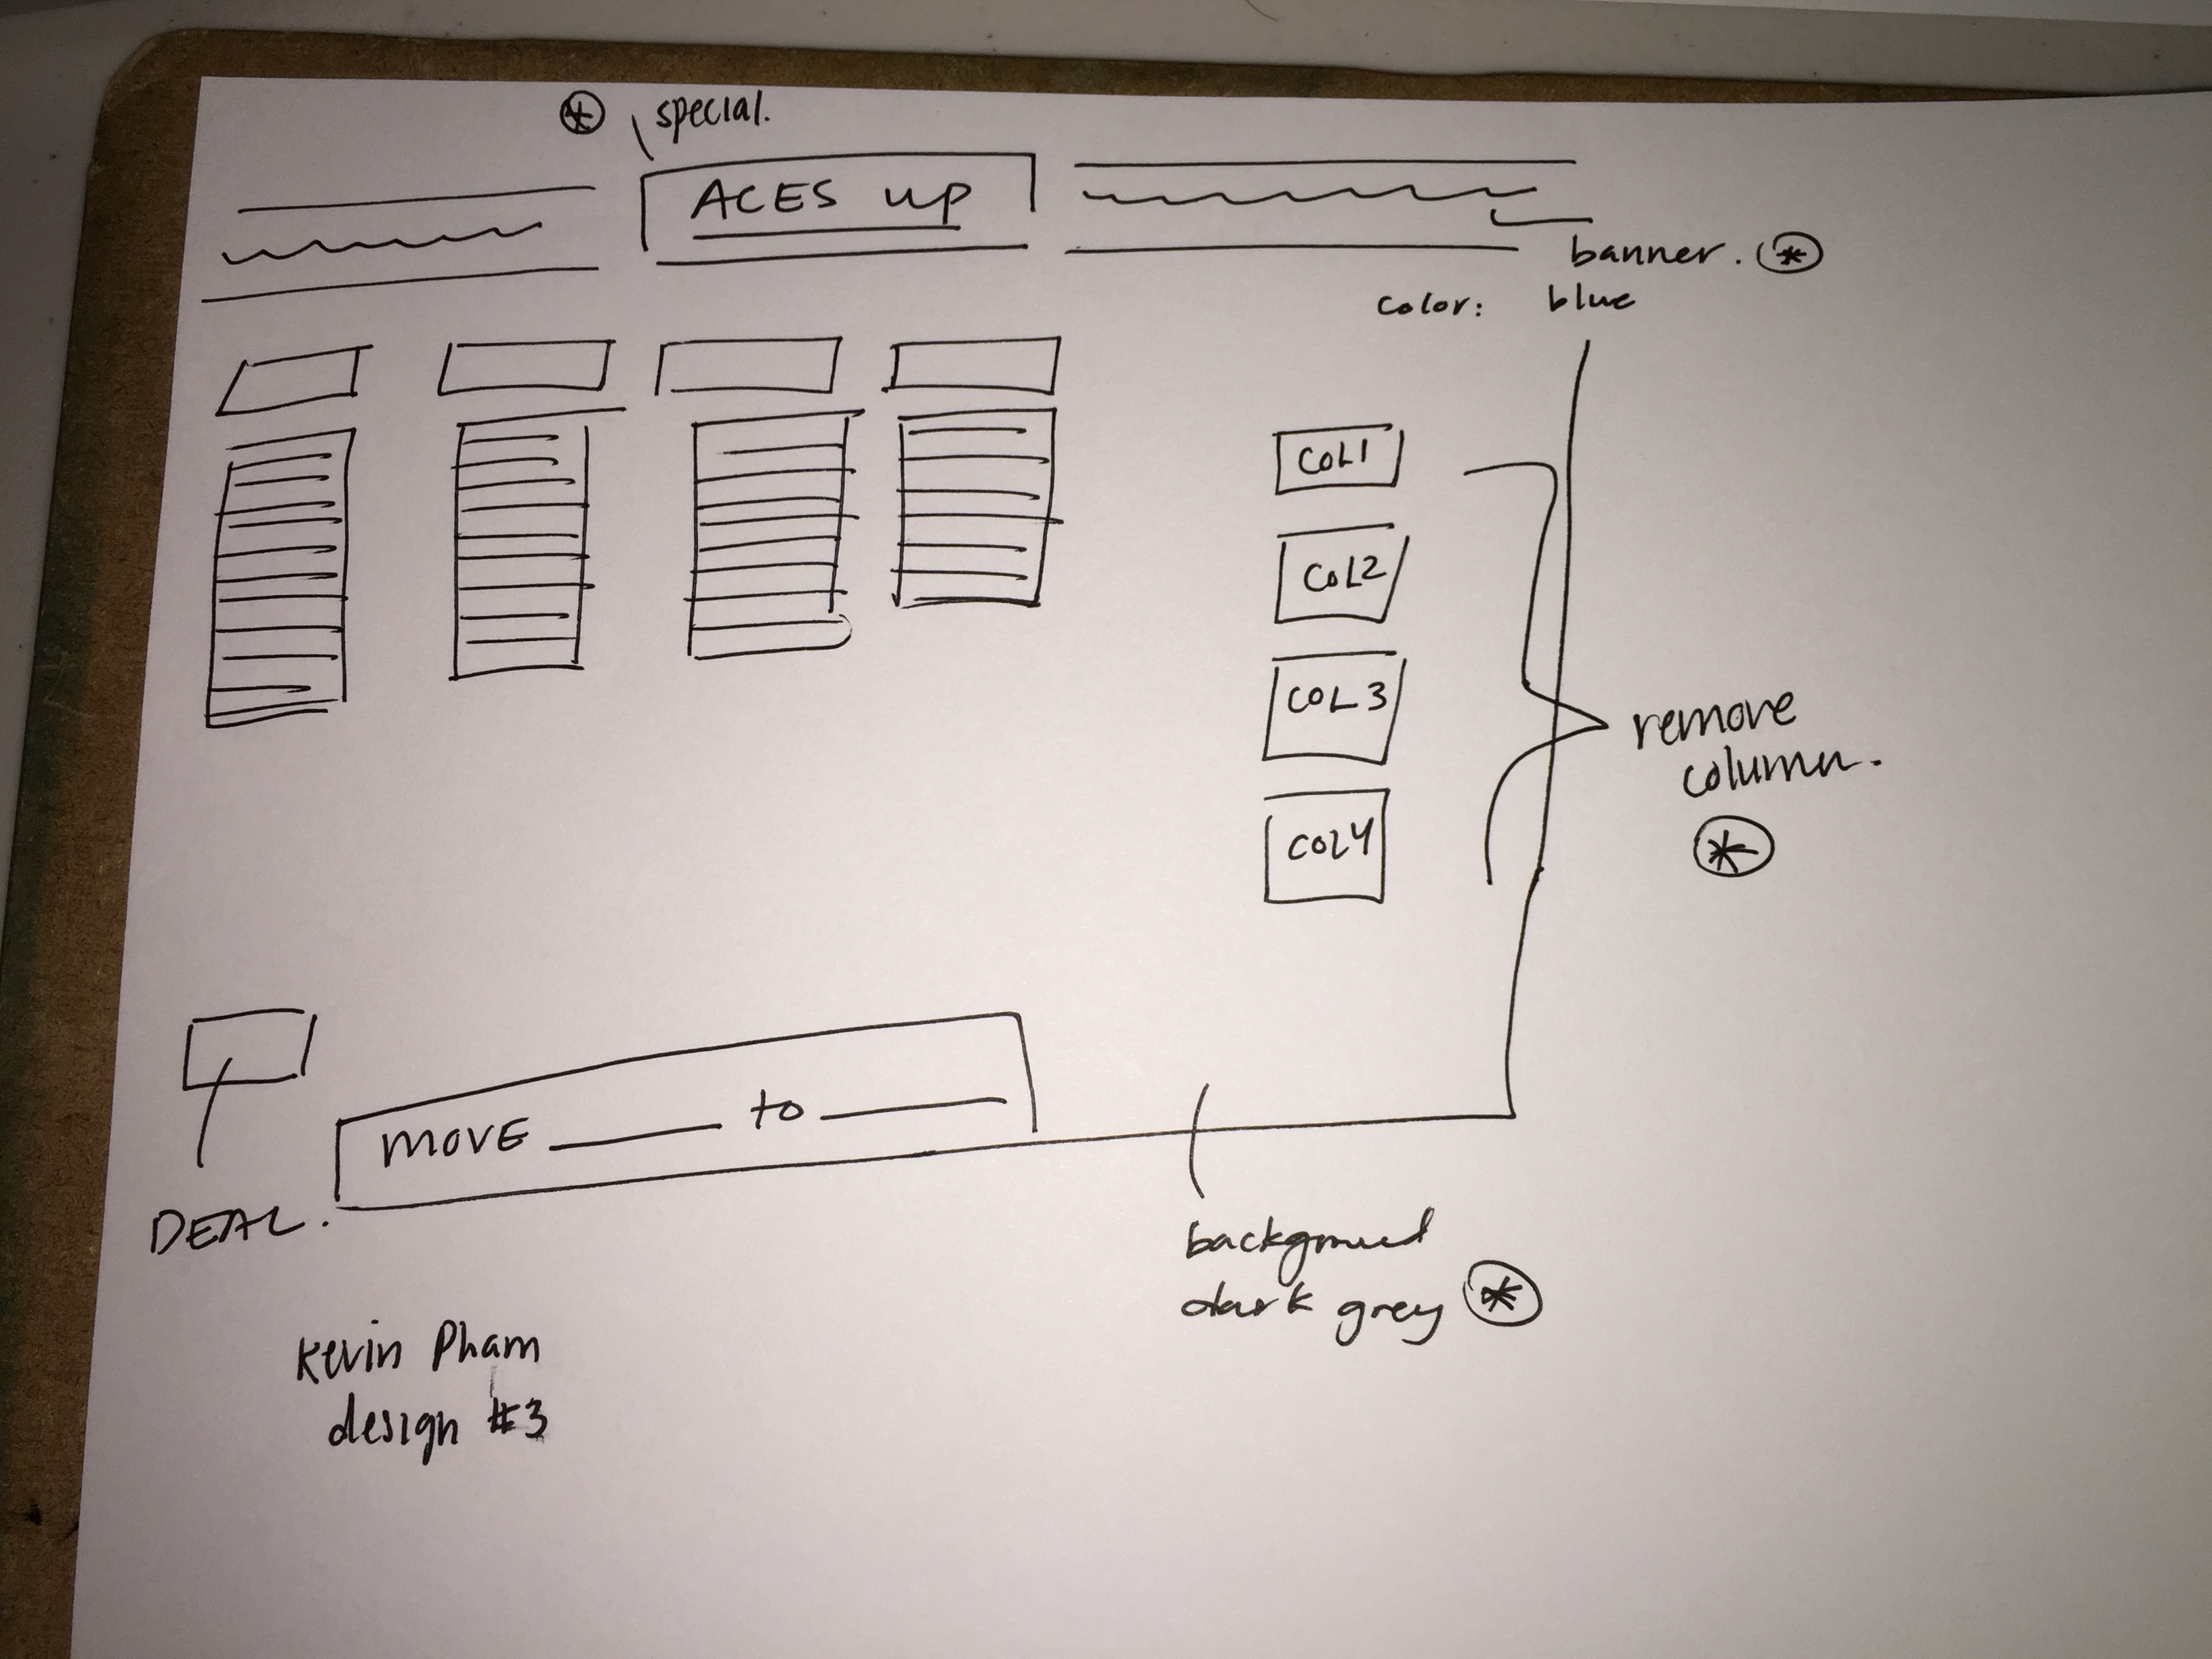 * special.
ACES up
banner. *
color: blue
COL1
COL2
COL3
COL4
remove
column.
*
MOVE ____ to ____
DEAL.
background
dark grey *
Kevin Pham
design #3